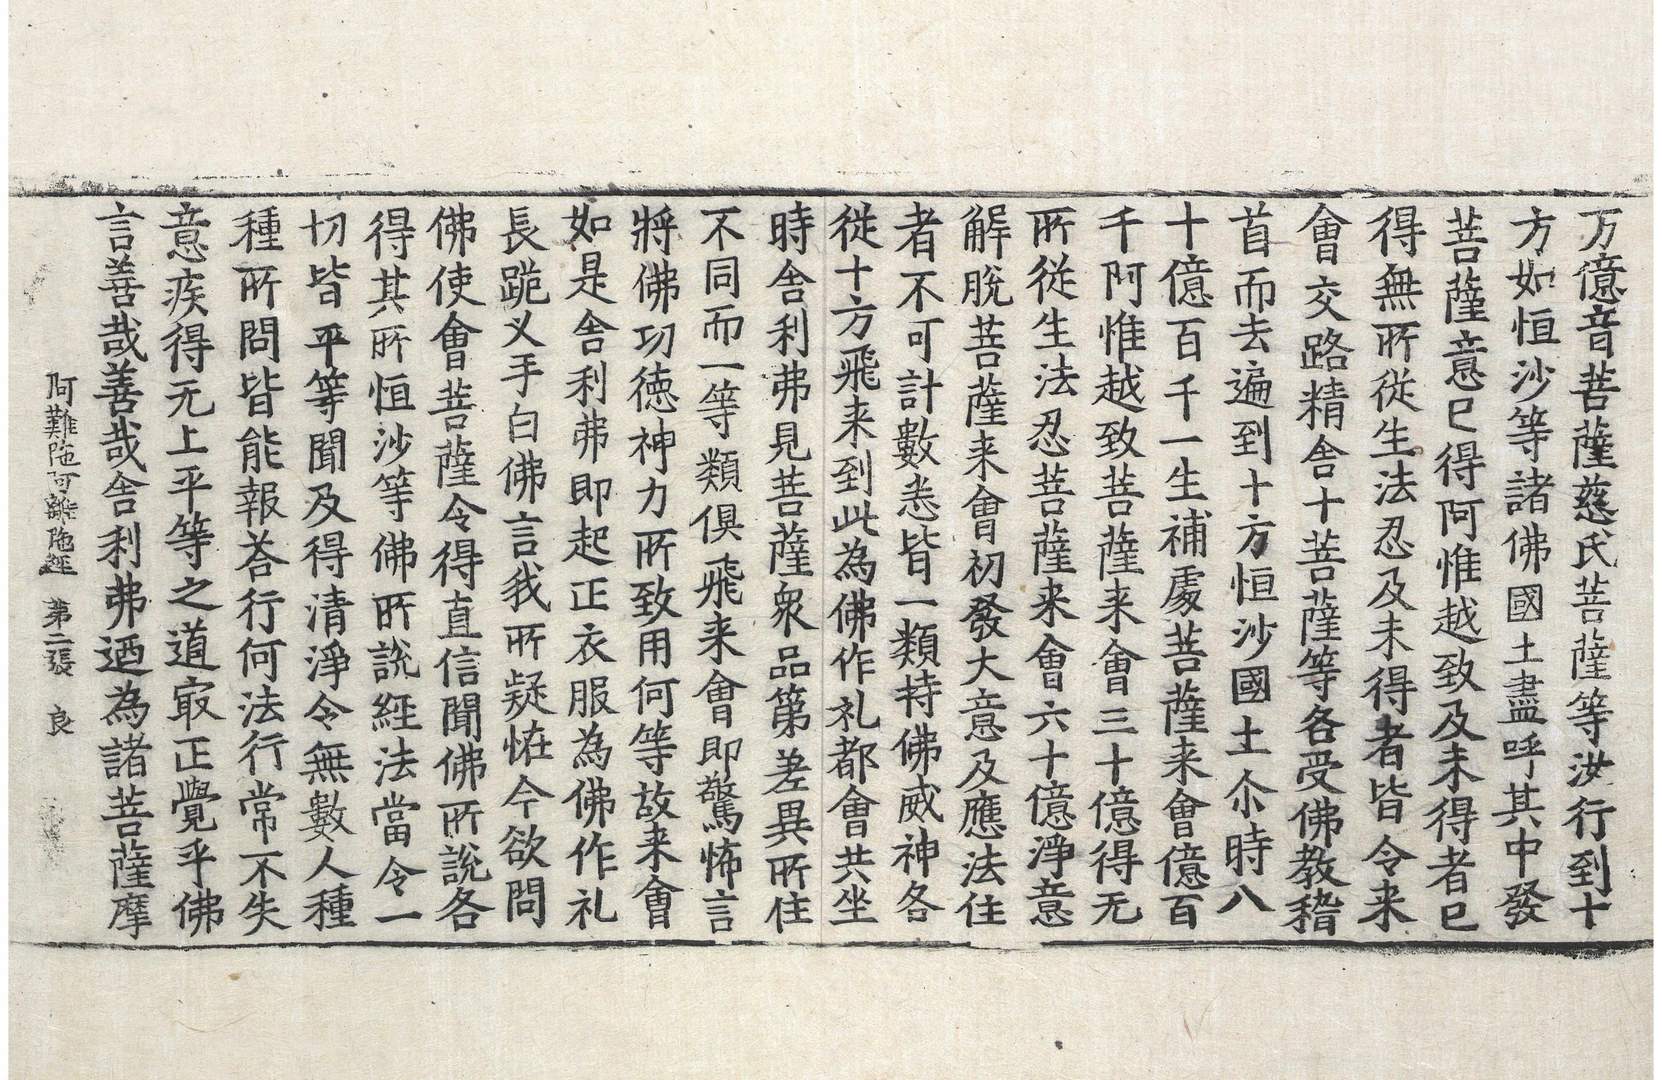 万億音菩薩慈氏菩薩等汝行到十
方如恒沙等諸佛國土盡呼其中發
菩薩意已得阿惟越致及未得者已
得無所從生法忍及未得者皆令来
會交路精舍十菩薩等各受佛教稽
首而去遍到十方恒沙國土尒時八
十億百千一生補處菩薩来會億百
千阿惟越致菩薩来會三十億得无
所從生法忍菩薩来會六十億淨意
解脫菩薩来會初發大意及應法住
者不可計數悉皆一類持佛威神各
從十方飛来到此為佛作礼都會共坐
時舍利弗見菩薩衆品第差異所住
不同而一等類俱飛来會即驚怖言
將佛功徳神力所致用何等故来會
如是舍利弗即起正衣服為佛作礼
長跪叉手白佛言我所疑恠今欲問
佛使會菩薩令得直信聞佛所說各
得其所恒沙等佛所說經法當令一
切皆平等聞及得清淨令無數人種
種所問皆能報荅行何法行常不失
意疾得无上平等之道㝡正覺乎佛
言善哉善哉舍利弗迺為諸菩薩摩
阿難陁阿離陁經 第二張 良